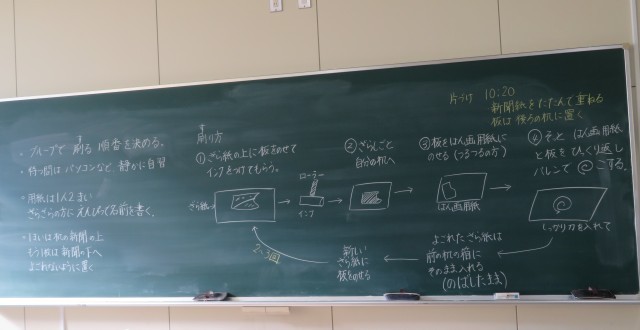 ・グループで 刷る 順番を決める。
す
・待ち時間は パソコンなど 静かに自習
・用紙は1人2まい
ざらざらの方に えんぴつで名前を書く。
・1まいは机の新聞の上
もう1枚は新聞の下へ
よごれないように置く
す
刷り方
①ざら紙の上に板をのせて
インクをつけてもらう。
ざら紙
ローラー
インク
②ざら紙ごと
自分の机へ
③板をはん画用紙に
のせる(つるつるの方)
はん画用紙
④そっと はん画用紙
と板を ひっくり返し
バレンで こする。
しっかり力を入れて
よごれたざら紙は
前の机の箱に
そのまま入れる
(のばしたまま)
新しい
ざら紙に
板をのせる
2、3回
片づけ 10:20
新聞紙をたたんで重ねる
板は後ろの机に置く